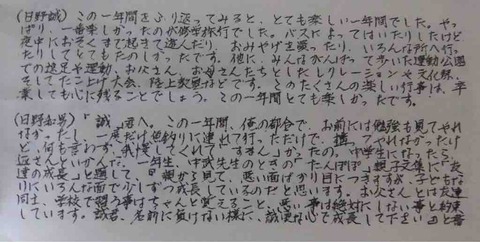 (日野誠)この一年間をふり返ってみると、とても楽しい一年間でした。やっ
ぱり、一番楽しかったのが修学旅行でした。バスによってはいたりしたけど
夜中におそくまで起きて遊んだり、おみやげを買ったり、いろんな所へ行っ
たりしてとてもたのしかったです。他に、みんながんばって歩いた運動公園
での遠足や運動、お父さん、お母さんたちとしたレクリレーションや文化祭、
そしてたこ上げ大会、陸上教室などです。このたくさんの楽しい行事は、卒
業しても心に残ることでしょう。この一年間とても楽しかったです。
(日野 「誠」君へ。この一年間、俺の都合で、お前には勉強も見てやれ
なかったし、一度だけ魚釣りに連れて行っただけで、 やれなかったけ
ど、何も言わず、我慢してくれて「すまん」かった。のう。中学生になったら、
といかんた。一年生、中武先生のときの「たんぽぽ」親子文集に「友
達の成長」と題して、「親から見て、悪い面ばかり目につきますが、子どもな
りにいろんな面で少しずつ成長しているのだと思います。お父さんとは友達
同士、学校で習う事はちゃんと覚えること、悪い事は絶対にしない事と約束
しています。誠君、名前に負けない様に、誠実な心で成長して下さい」と書